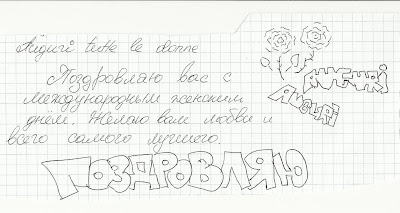 Auguri tutte le donne
Поздровляю вас с
международным женским
днем. Желаю вам любви и
всего самого лучшего.
AUGURI
AUGURI
ПОЗДРОВЛЯЮ